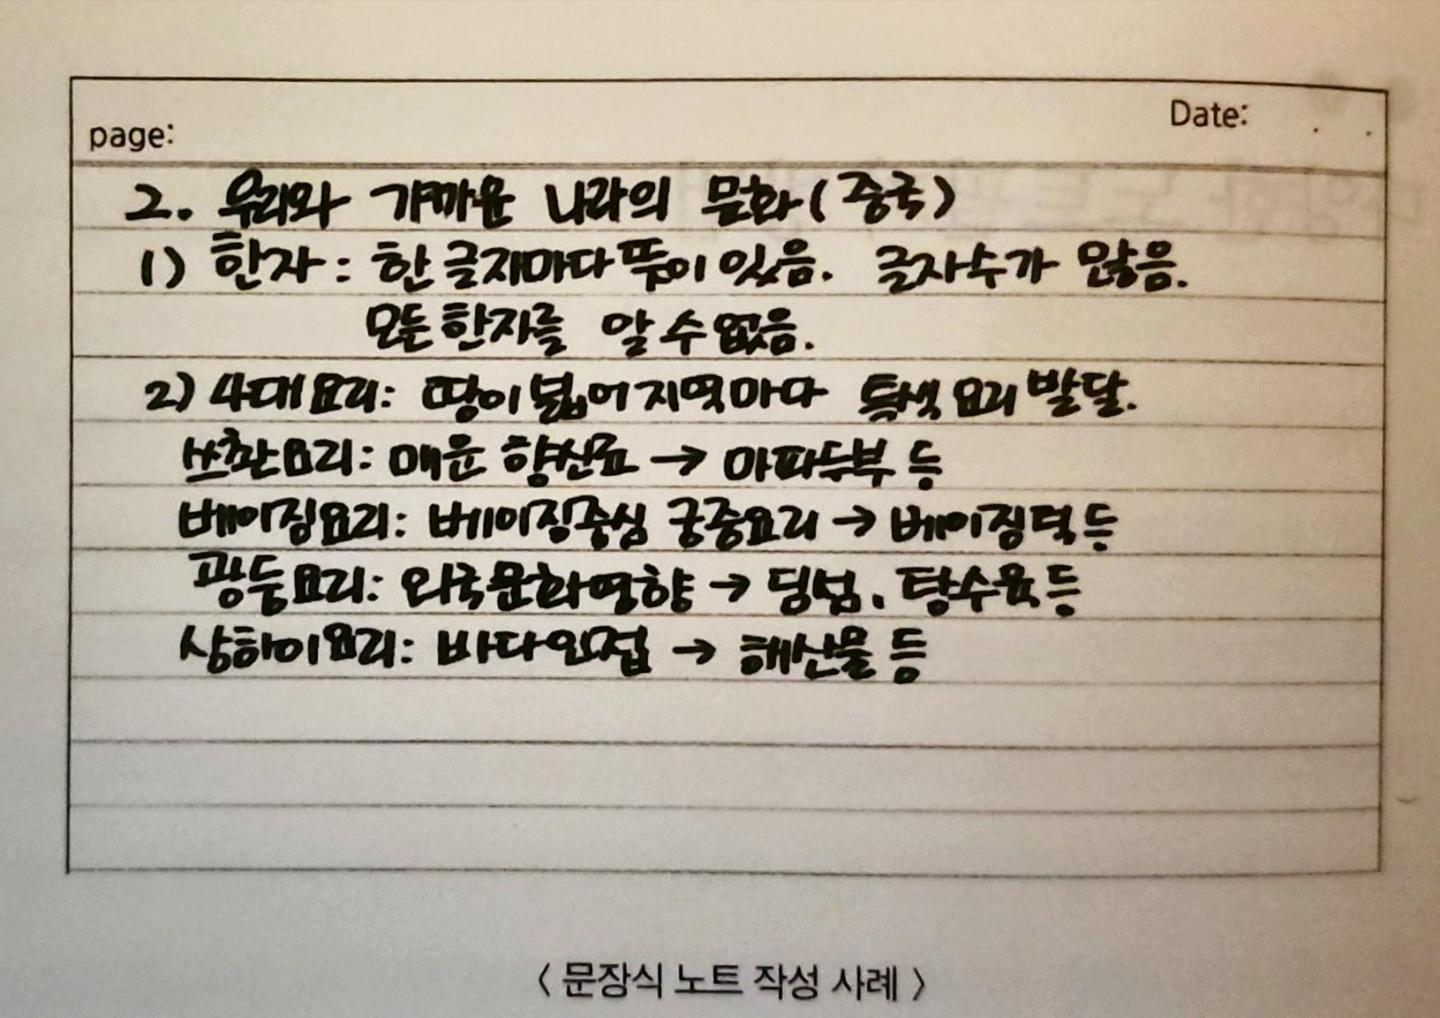 page:
Date: . .
2. 우리와 가까운 나라의 문화(중국)
1) 한자 : 한 글자마다 뜻이 있음. 글자수가 많음.
모든 한자를 알 수 없음.
2) 4대요리: 땅이 넓어 지역마다 특색 요리 발달.
쓰촨요리: 매운 향신료 → 마파두부 등
베이징요리: 베이징중심 궁중요리 → 베이징덕 등
광둥요리: 외국문화영향 → 딤섬, 탕수육 등
상하이요리: 바다인접 → 해산물 등
〈 문장식 노트 작성 사례 〉